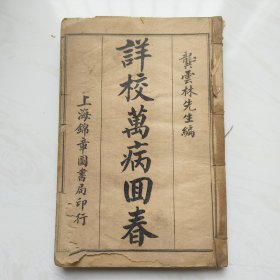 龔雲林先生編
詳校萬病回春
上海錦章圖書局印行